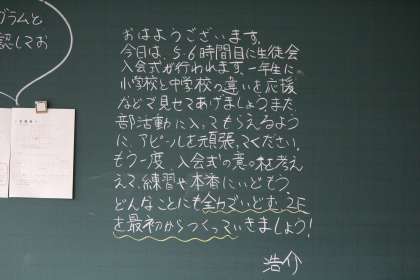 グラムと
認してお
おはようございます。
今日は、5・6時間目に生徒会
入会式が行われます。一年生に
小学校と中学校の違いを応援
などで見せてあげましょう。また、
部活動に入ってもらえるよう
に、アピールを頑張ってください。
もう一度、入会式の意味を考え
えて、練習や本番にいどもう。
どんなことにも全力でいどむ、2F
を最初からつくっていきましょう!
浩介